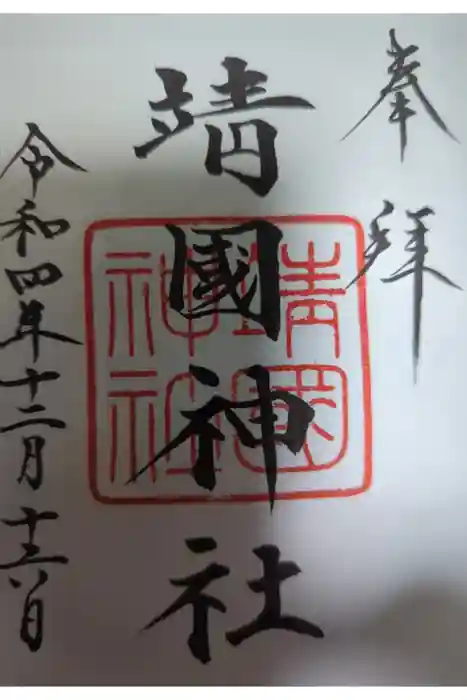 奉拝
靖國神社
靖國
神社
令和四年十二月十六日